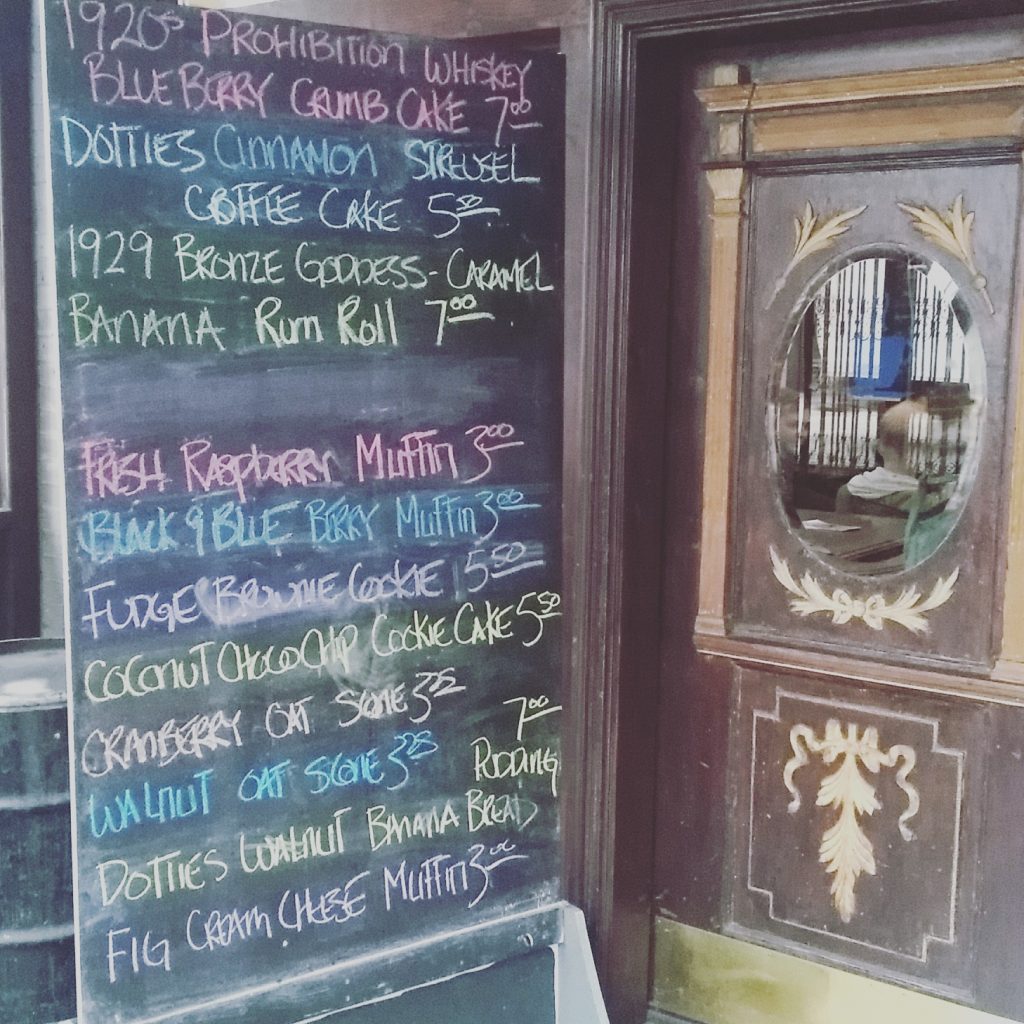 1920s PROHIBITION WHISKEY
BLUE BERRY CRUMB CAKE 7.00
DOTTIES CINNAMON STREUSEL
COFFEE CAKE 5.50
1929 BRONZE GODDESS - CARAMEL
BANANA RUM ROLL 7.00
FRESH RASPBERRY MUFFIN 3.00
BLACK & BLUE BERRY MUFFIN 3.00
FUDGE BROWNIE COOKIE 5.50
COCONUT CHOCO CHIP COOKIE CAKE 5.50
CRANBERRY OAT SCONE 3.25
WALNUT OAT SCONE 3.25
7.00
PUDDING
DOTTIES WALNUT BANANA BREAD
FIG CREAM CHEESE MUFFIN 3.00